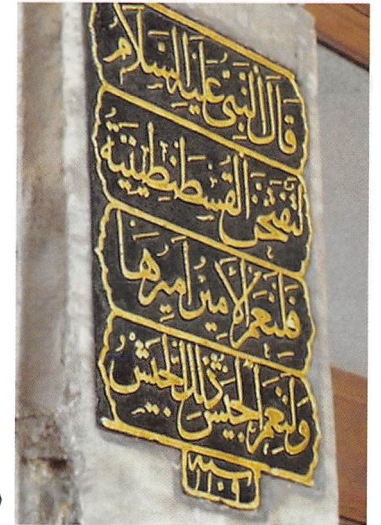 قَالَ النَّبِيُّ عَلَيْهِ السَّلَامُ
لَتُفْتَحَنَّ الْقُسْطَنْطِينِيَّةُ
فَلَنِعْمَ الْأَمِيرُ أَمِيرُهَا
وَلَنِعْمَ الْجَيْشُ ذَلِكَ الْجَيْشُ
سنة